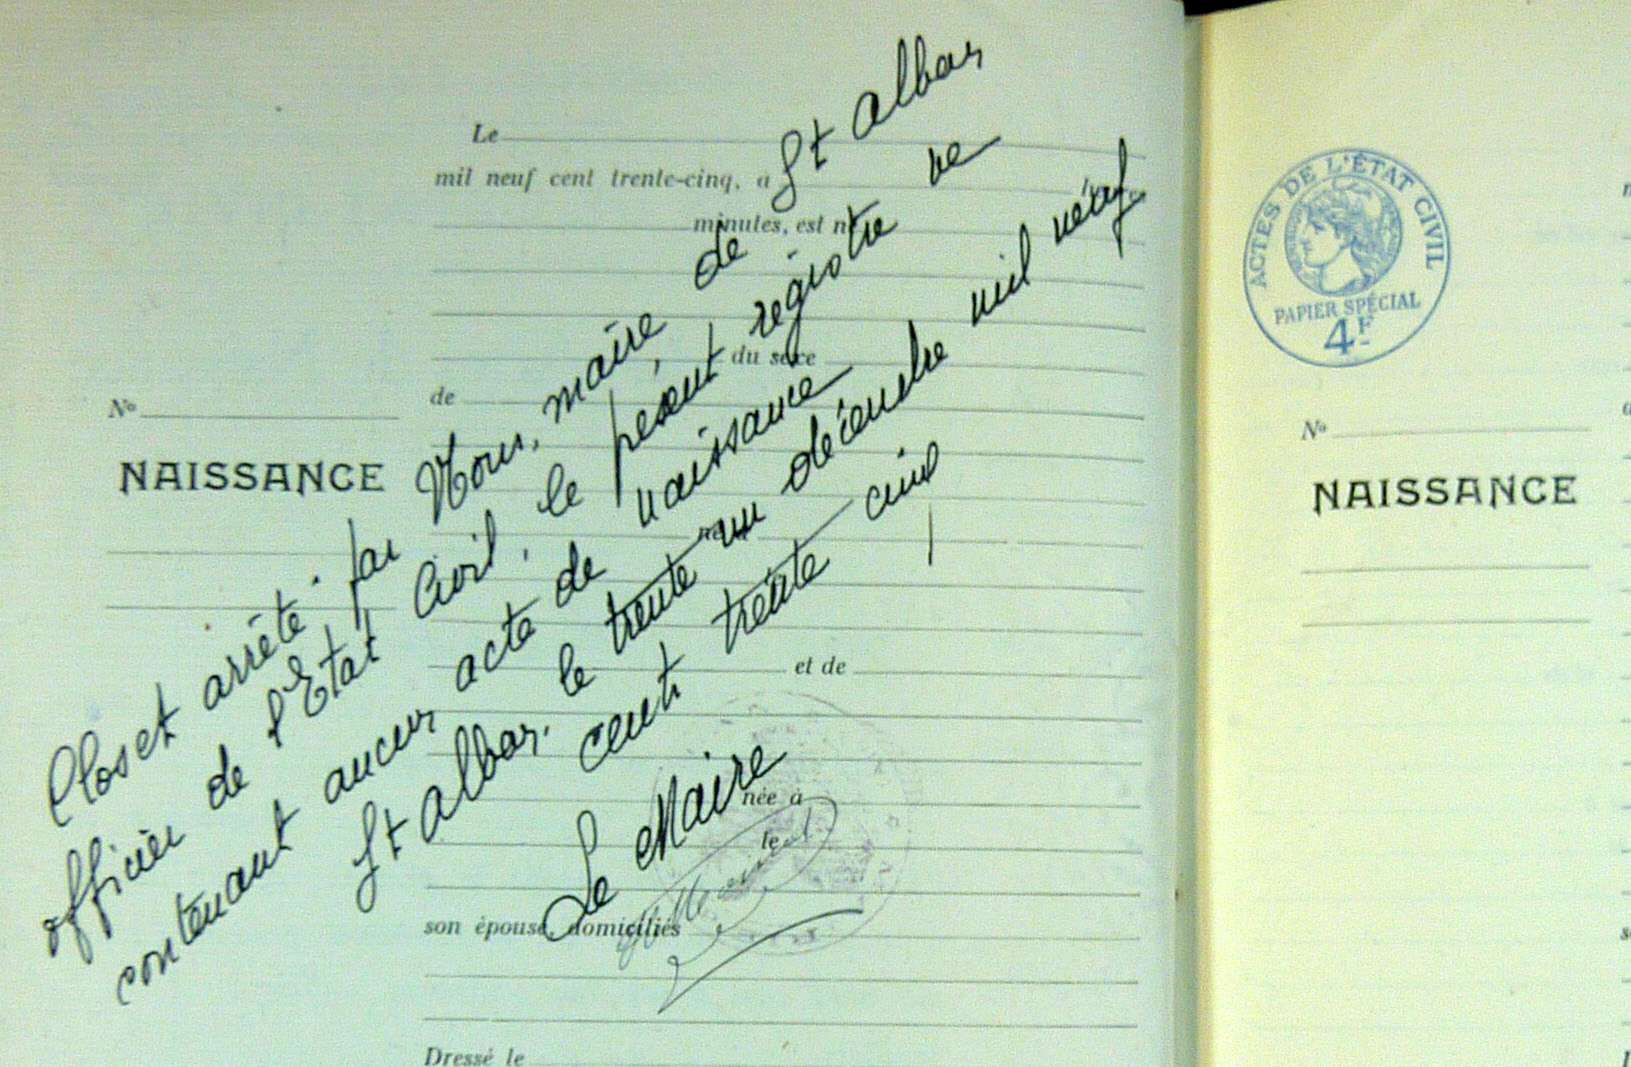 Le
mil neuf cent trente-cinq, à
minutes, est né
du sexe
de
No
NAISSANCE
et de
née à
le
son épouse, domiciliés
Dressé le
Clos et arrêté par Nous, maire de St Alban
officier de l'Etat Civil, le présent régistre ne
contenant aucun acte de naissance
St Alban, le trente un décembre mil neuf
cent trente cinq
Le Maire
ACTES DE L'ÉTAT CIVIL
PAPIER SPÉCIAL
4F
No
NAISSANCE